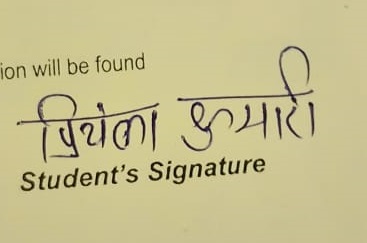 ion will be found
प्रियंका कुमारी
Student's Signature